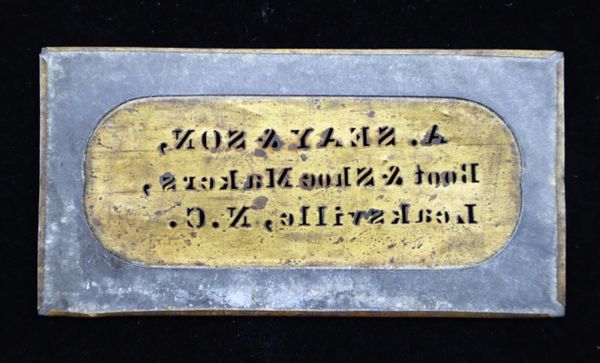 A. SEAY & SON,
Boot & Shoe Makers,
Leaksville, N.C.